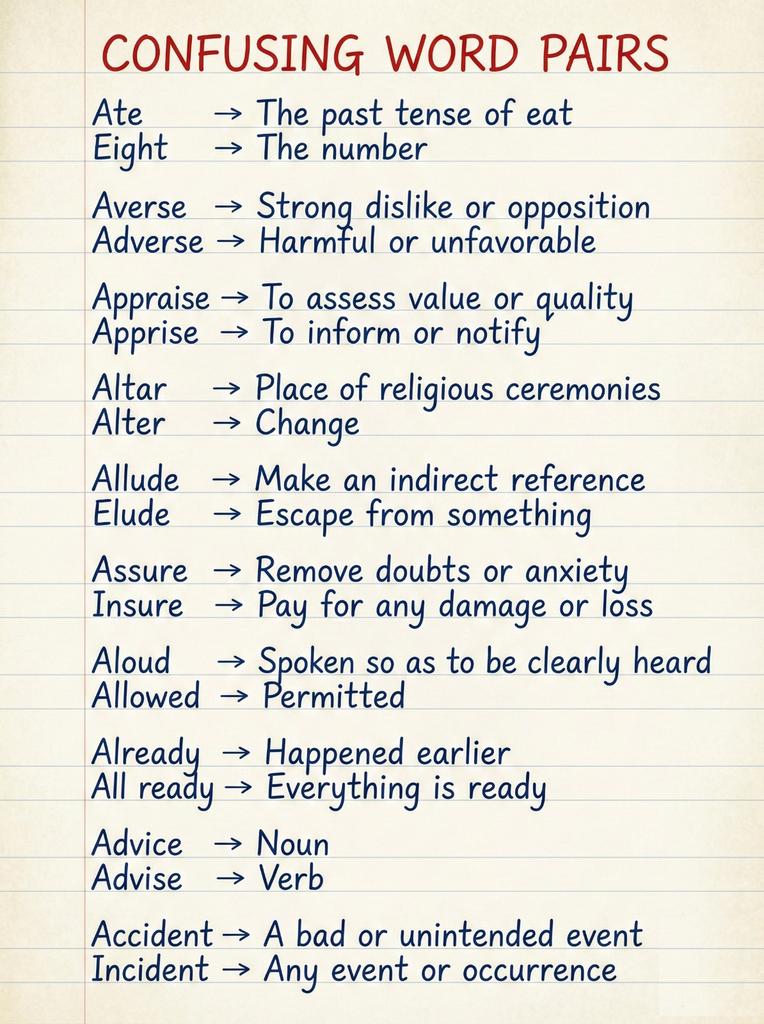 CONFUSING WORD PAIRS
Ate → The past tense of eat
Eight → The number
Averse → Strong dislike or opposition
Adverse → Harmful or unfavorable
Appraise → To assess value or quality
Apprise → To inform or notify
Altar → Place of religious ceremonies
Alter → Change
Allude → Make an indirect reference
Elude → Escape from something
Assure → Remove doubts or anxiety
Insure → Pay for any damage or loss
Aloud → Spoken so as to be clearly heard
Allowed → Permitted
Already → Happened earlier
All ready → Everything is ready
Advice → Noun
Advise → Verb
Accident → A bad or unintended event
Incident → Any event or occurrence